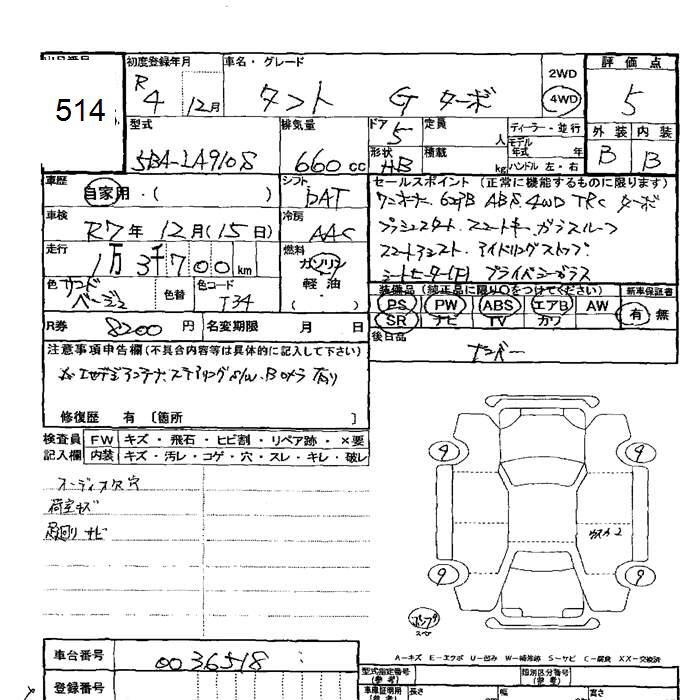 514
初度登録年月 車名・グレード
R4 12月 タント G ターボ
2WD
4WD
評価点
5
外装 内装
B B
型式 排気量 ドア 定員 ディーラー・並行
5BA-LA910S 660cc 5 人
形状 積載 モデル年式 年
HB kg ハンドル 左・右
車歴 自家用・( )
シフト DAT
車検 R7年12月(15日)
冷房 AAC
走行 1万3千700km
燃料 ガソリン
軽油
・( )
色 サンドベージュ 色替 色コード T34
R券 8200円 名変期限 月 日
セールスポイント(正常に機能するものに限ります)
ABS 4WD TRC ターボ
プッシュスタート スマートキー ガラスルーフ
スマートアシスト アイドリングストップ
シートヒーター(F) プライバシーガラス
装備品(純正品に限り○をつけてください) 新車保証書
PS PW ABS エアB AW 有 無
SR ナビ TV カワ
後日品 ナンバー
注意事項申告欄(不具合内容等は具体的に記入して下さい)
ステアリングS/W、Bカメラ有り
修復歴 有 〔箇所 〕
検査員記入欄
FW キズ・飛石・ヒビ割・リペア跡・×要
内装 キズ・汚レ・コゲ・穴・スレ・キレ・破レ
オーディオ欠穴
荷室キズ
足廻りサビ
9 9
9 9
A-キズ E-エクボ U-凹み W-補修跡 S-サビ C-腐食 XX-交換済
車台番号 0036518
登録番号
型式指定番号(参考) 類別区分番号(参考)
長さ 幅 高さ